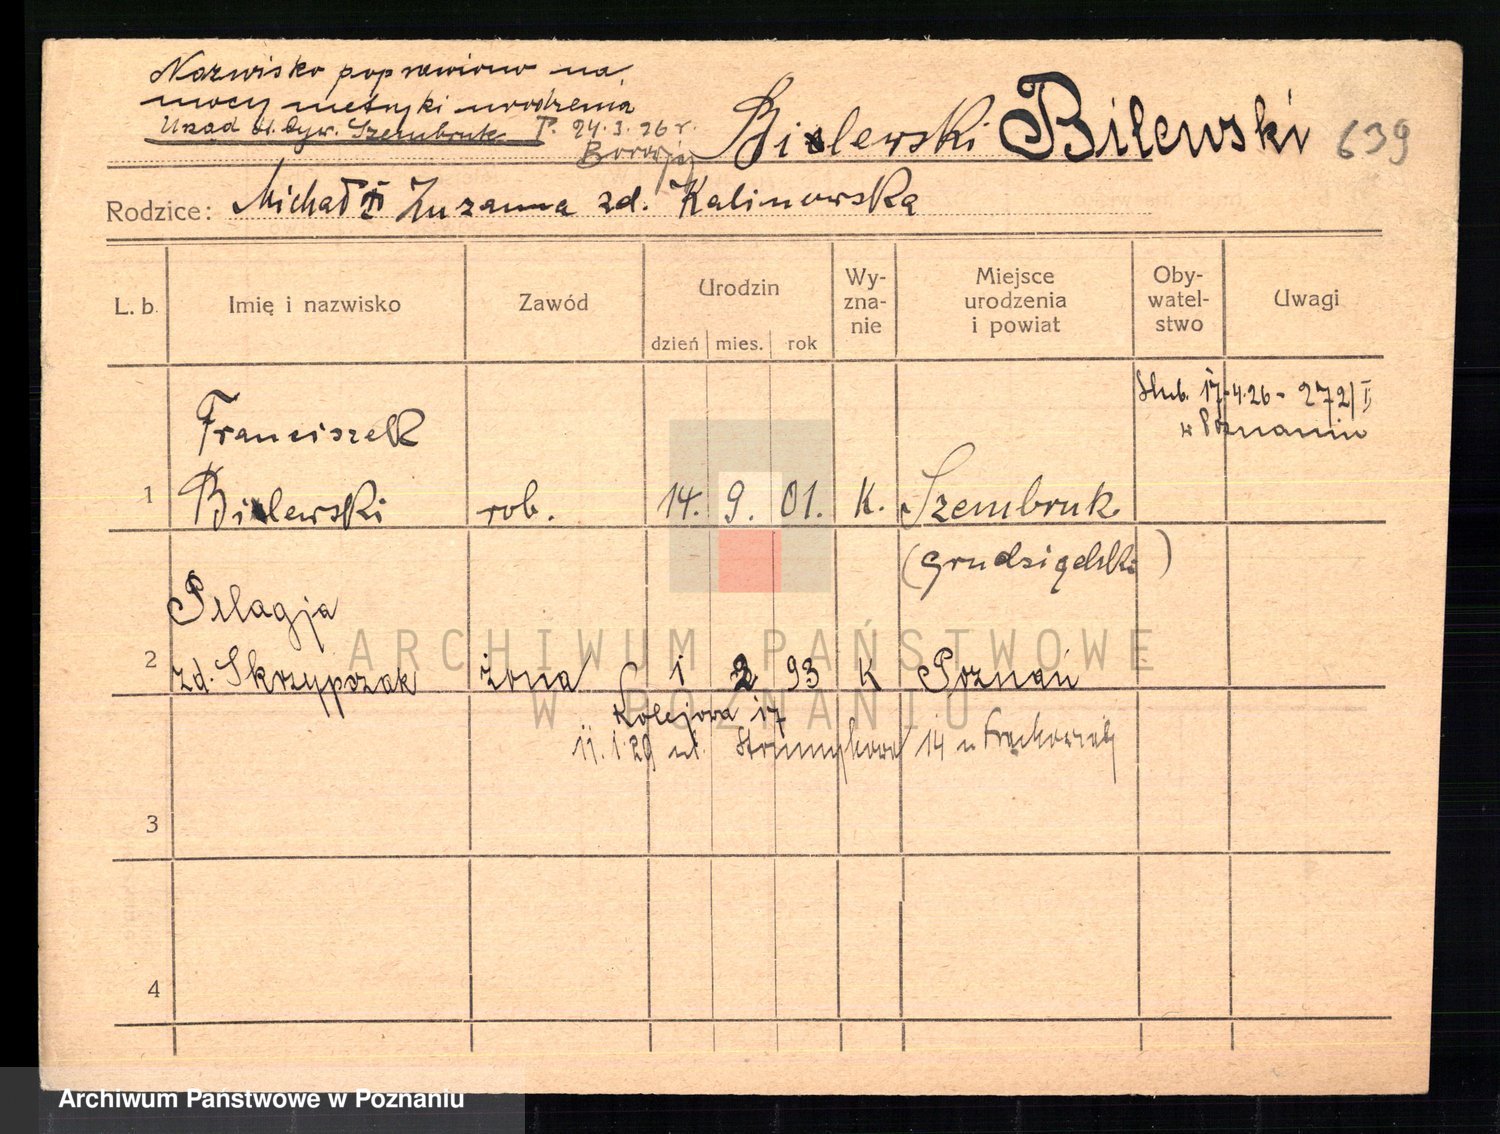 Nazwisko poprawiono na
mocy metryki urodzenia
Urząd St. Cyw. Szembruk P. 24.3.26 r.
Bielewski Bilewski 639
Rodzice: Michał i Zuzanna zd. Kalinowska
L. b. Imię i nazwisko Zawód Urodzin dzień mies. rok Wy-
zna-
nie Miejsce
urodzenia
i powiat Oby-
watel-
stwo Uwagi
Ślub. 17.4.26 - 272/I
w Poznaniu
Franciszek
1 Bielewski rob. 14. 9. 01. K. Szembruk
(grudziądzki)
Pelagja
2 zd. Skrzypczak żona 1 2 93 K Poznań
Kolejowa 17
11.1.29 ul. Strumykowa 14 u
3
4
ARCHIWUM PAŃSTWOWE
W POZNANIU
Archiwum Państwowe w Poznaniu